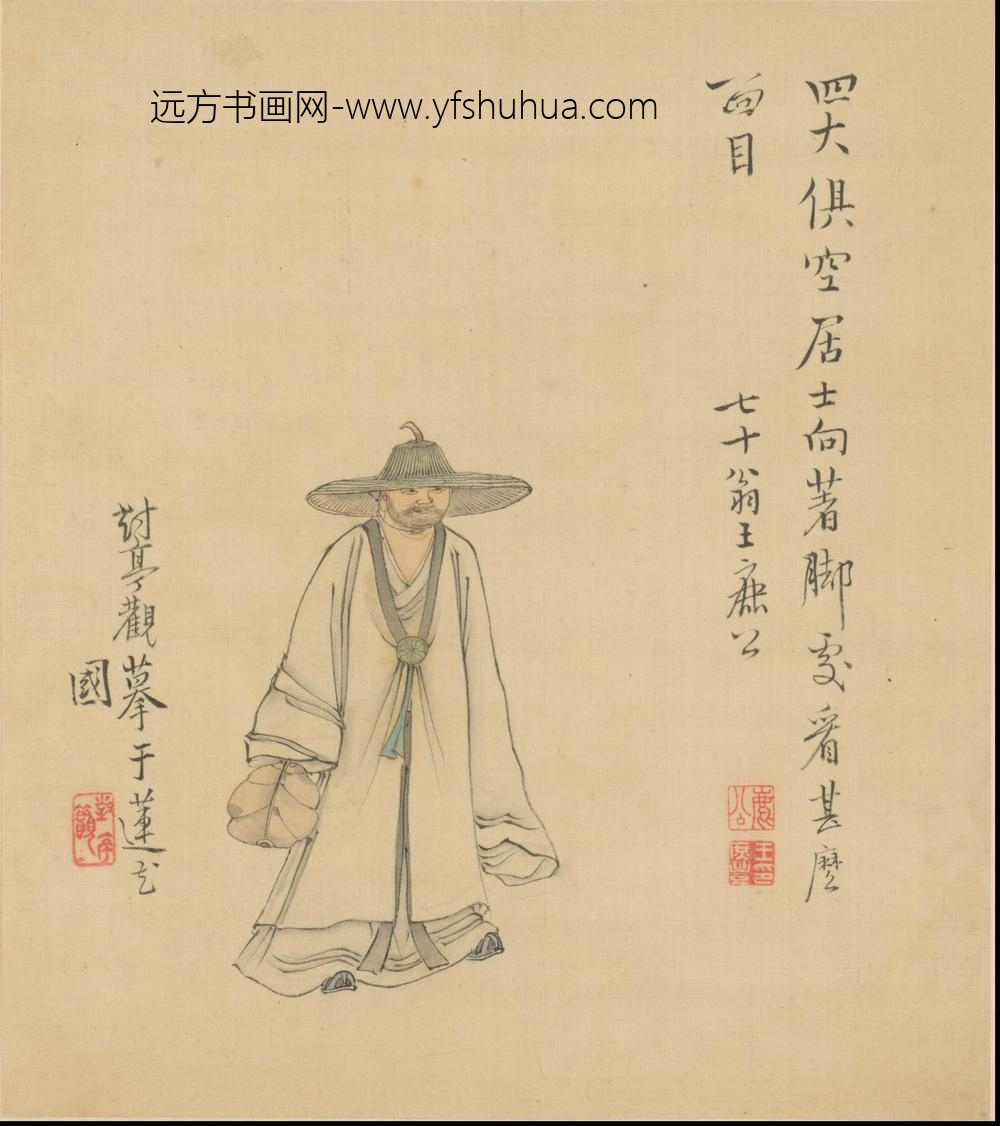 远方书画网-www.yfshuhua.com
四大俱空居士向著脚處看甚麼
面目
七十翁王鹿公
亭觀摹于蓮花
國
鹿公